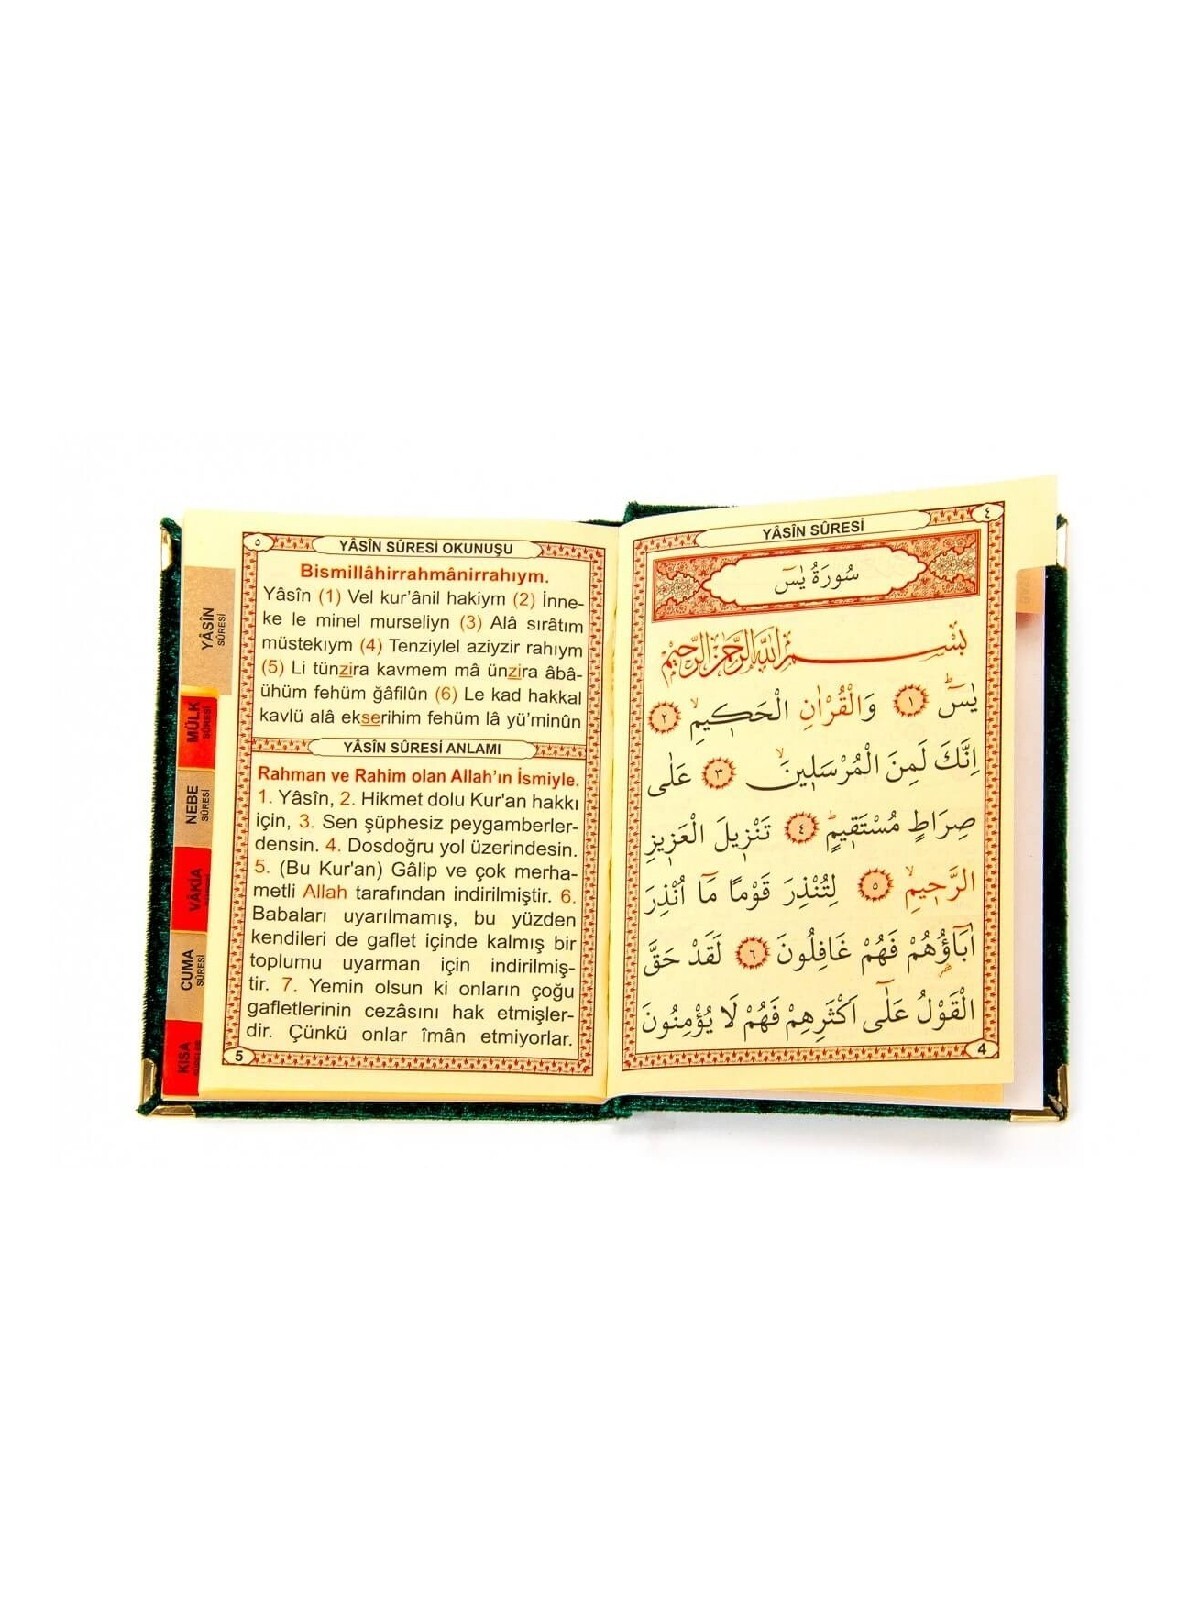 YÂSİN
SÛRESİ
MÜLK
SÛRESİ
NEBE
SÛRESİ
VÂKIA
CUMA
SÛRESİ
KISA
٥
YÂSÎN SÛRESİ OKUNUŞU
Bismillâhirrahmânirrahıym.
Yâsîn (1) Vel kur'ânil hakiym (2) İnne-
ke le minel murseliyn (3) Alâ sırâtım
müstekıym (4) Tenziylel aziyzir rahıym
(5) Li tünzira kavmem mâ ünzira âbâ-
ühüm fehüm ğâfilûn (6) Le kad hakkal
kavlü alâ ekserihim fehüm lâ yü'minûn
YÂSÎN SÛRESİ ANLAMI
Rahman ve Rahim olan Allah'ın İsmiyle.
1. Yâsîn, 2. Hikmet dolu Kur'an hakkı
için, 3. Sen şüphesiz peygamberler-
densin. 4. Dosdoğru yol üzerindesin.
5. (Bu Kur'an) Gâlip ve çok merha-
metli Allah tarafından indirilmiştir. 6.
Babaları uyarılmamış, bu yüzden
kendileri de gaflet içinde kalmış bir
toplumu uyarman için indirilmiş-
tir. 7. Yemin olsun ki onların çoğu
gafletlerinin cezâsını hak etmişler-
dir. Çünkü onlar îmân etmiyorlar.
5
٤
YÂSÎN SÛRESİ
سُورَةُ يٰسٓ
بِسْمِ اللهِ الرَّحْمٰنِ الرَّحِيمِ
يٰسٓ ۚ ١ وَالْقُرْاٰنِ الْحَك۪يمِۙ ٢
اِنَّكَ لَمِنَ الْمُرْسَل۪ينَۙ ٣ عَلٰى
صِرَاطٍ مُسْتَق۪يمٍۜ ٤ تَنْز۪يلَ الْعَز۪يزِ
الرَّح۪يمِۙ ٥ لِتُنْذِرَ قَوْمًا مَٓا اُنْذِرَ
اٰبَٓاؤُ۬هُمْ فَهُمْ غَافِلُونَ ٦ لَقَدْ حَقَّ
الْقَوْلُ عَلٰٓى اَكْثَرِهِمْ فَهُمْ لَا يُؤْمِنُونَ
4